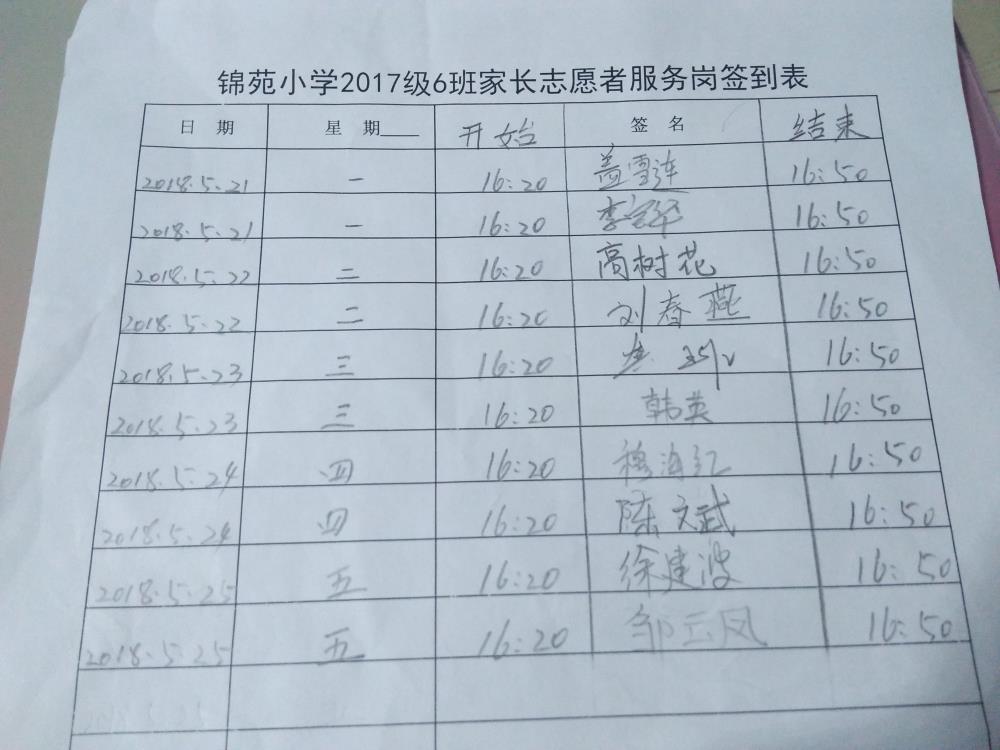 锦苑小学2017级6班家长志愿者服务岗签到表
日 期 星 期 开始 签 名 结束
2018.5.21 一 16:20 盖雪连 16:50
2018.5.21 一 16:20 李 16:50
2018.5.22 二 16:20 高树花 16:50
2018.5.22 二 16:20 刘春燕 16:50
2018.5.23 三 16:20 16:50
2018.5.23 三 16:20 韩英 16:50
2018.5.24 四 16:20 穆海红 16:50
2018.5.24 四 16:20 陈文武 16:50
2018.5.25 五 16:20 徐建波 16:50
2018.5.25 五 16:20 邹云凤 16:50